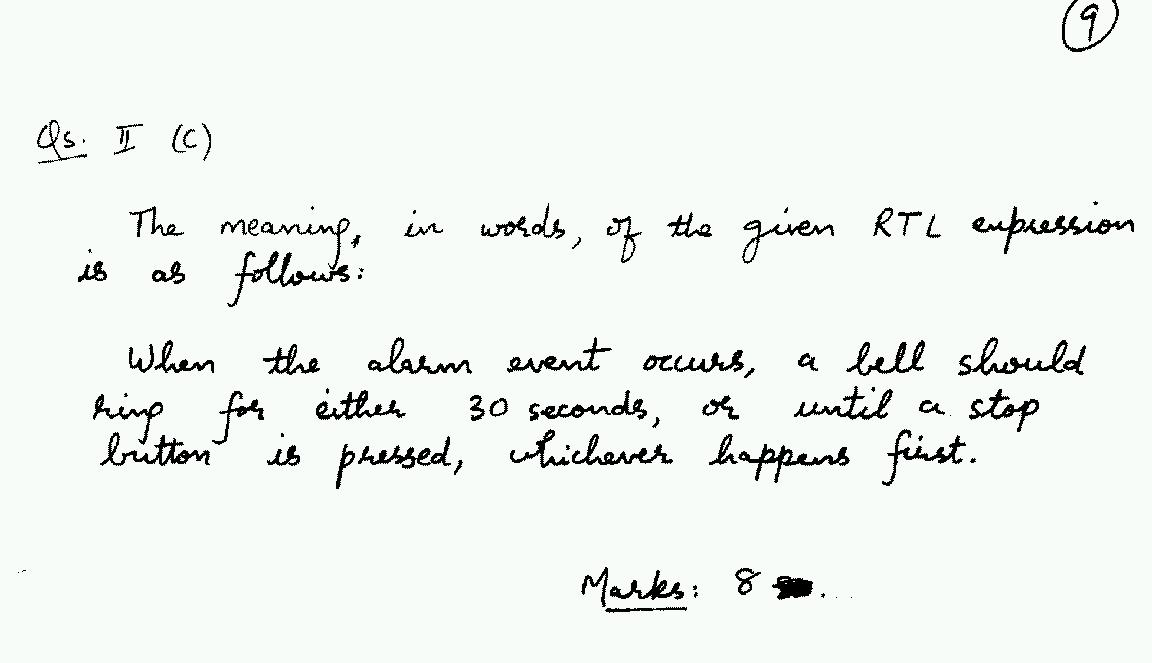 9
Qs. II (C)
The meaning, in words, of the given RTL expression
is as follows:
When the alarm event occurs, a bell should
ring for either 30 seconds, or until a stop
button is pressed, whichever happens first.
Marks: 8